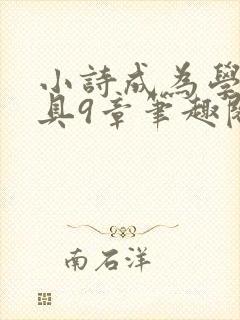 小詩成為學
具9章筆趣閣
南石洋